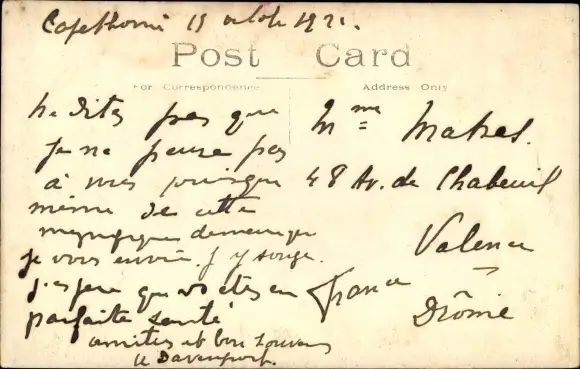 Capesthorne 15 octobre 1921.
Post Card
For Correspondence
Address Only
Ne dites pas que
je ne pense pas
à vous puisque
même de cette
magnifique demeure que
je vous envoie j'y songe.
J'espère que vs êtes en
parfaite santé
amitiés et bon souvenir
Davenport.
Mme Matras.
48 Av. de Chabeuil
Valence
Drôme
France